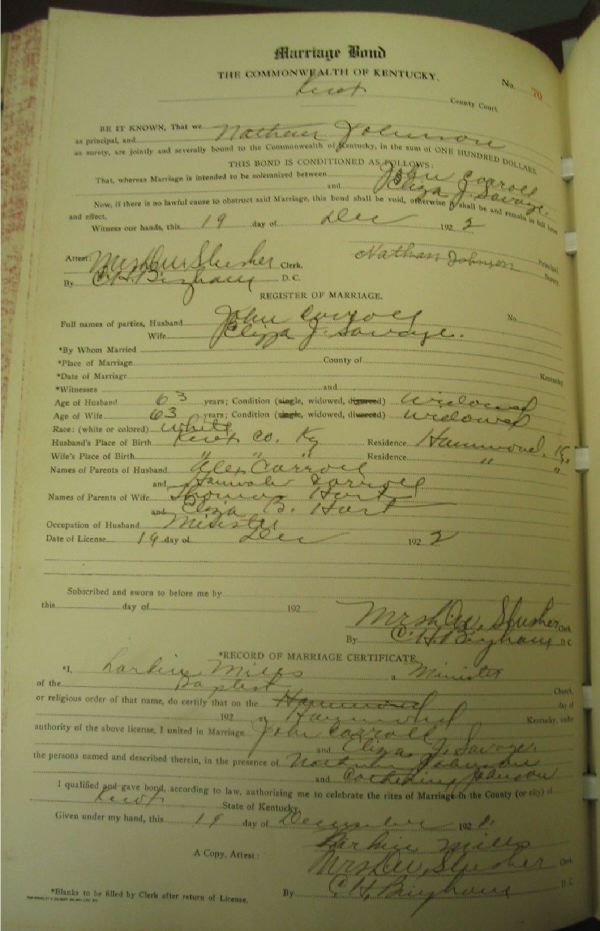 Marriage Bond
THE COMMONWEALTH OF KENTUCKY.
No. 70
Knox County Court.
BE IT KNOWN, That we
as principal, and Nathan Johnson
as surety, are jointly and severally bound to the Commonwealth of Kentucky, in the sum of ONE HUNDRED DOLLARS.
THIS BOND IS CONDITIONED AS FOLLOWS:
That, whereas Marriage is intended to be solemnized between John Carroll
and Eliza J. Savage.
Now, if there is no lawful cause to obstruct said Marriage, this bond shall be void, otherwise it shall be and remain in full force
and effect.
Witness our hands, this 19 day of Dec 1922
Principal
Attest: Mrs D W Slusher Clerk. Nathan Johnson Surety
By C. H. Bingham D. C.
REGISTER OF MARRIAGE.
No.
Full names of parties, Husband John Carroll
Wife Eliza J. Savage.
*By Whom Married
*Place of Marriage County of Kentucky
*Date of Marriage
*Witnesses and
Age of Husband 63 years; Condition (single, widowed, divorced) widowed
Age of Wife 63 years; Condition (single, widowed, divorced) widowed
Race: (white or colored) white
Husband's Place of Birth Knox Co. Ky Residence Hammond, Ky.
Wife's Place of Birth " " " Residence " "
Names of Parents of Husband Alex Carroll
and Carroll
Names of Parents of Wife Thomas Hart
and Eliza B. Hart
Occupation of Husband Minister
Date of License 19 day of Dec 1922
Subscribed and sworn to before me by
this day of 192
Mrs D W. Slusher Clerk
By C. H. Bingham D C
*RECORD OF MARRIAGE CERTIFICATE.
*I, Larkin Mills a Minister
of the Baptist Church,
or religious order of that name, do certify that on the Hammond day of
192 Hammond Kentucky, under
authority of the above license, I united in Marriage John Carroll
and Eliza J. Savage
the persons named and described therein, in the presence of Nathan Johnson
and Johnson
I qualified and gave bond, according to law, authorizing me to celebrate the rites of Marriage in the County (or city) of
Knox State of Kentucky.
Given under my hand, this 19 day of December 192
Larkin Mills
A Copy, Attest: Mrs D W. Slusher Clerk
By C. H. Bingham D. C.
*Blanks to be filled by Clerk after return of License.